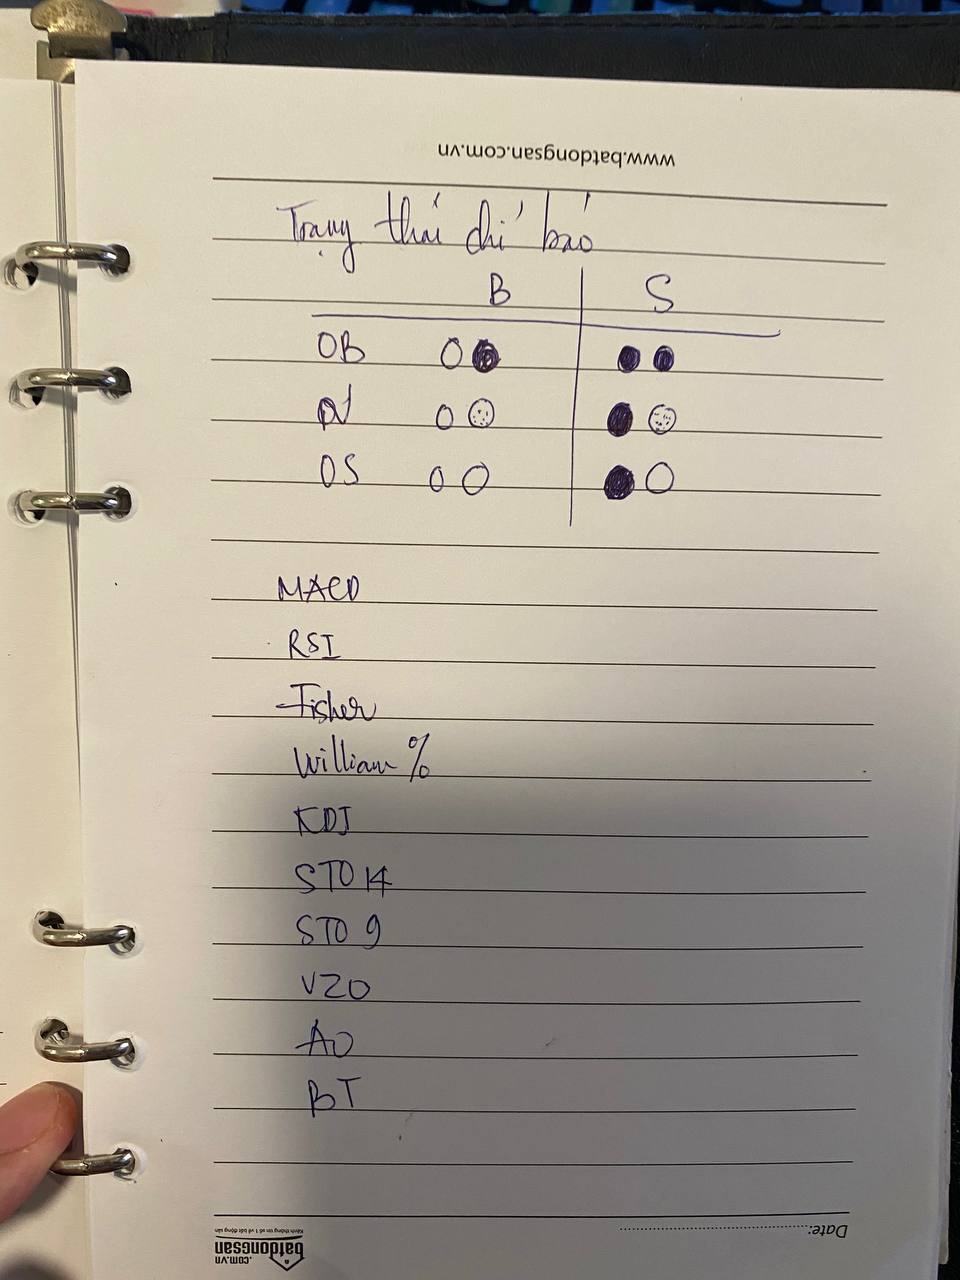 www.batdongsan.com.vn
Trạng thái chỉ báo
B S
OB
N
OS
MACD
RSI
Fisher
William %
KDJ
STO 14
STO 9
VZO
AO
BT
Date:
batdongsan
.com.vn
Kênh thông tin số 1 về bất động sản